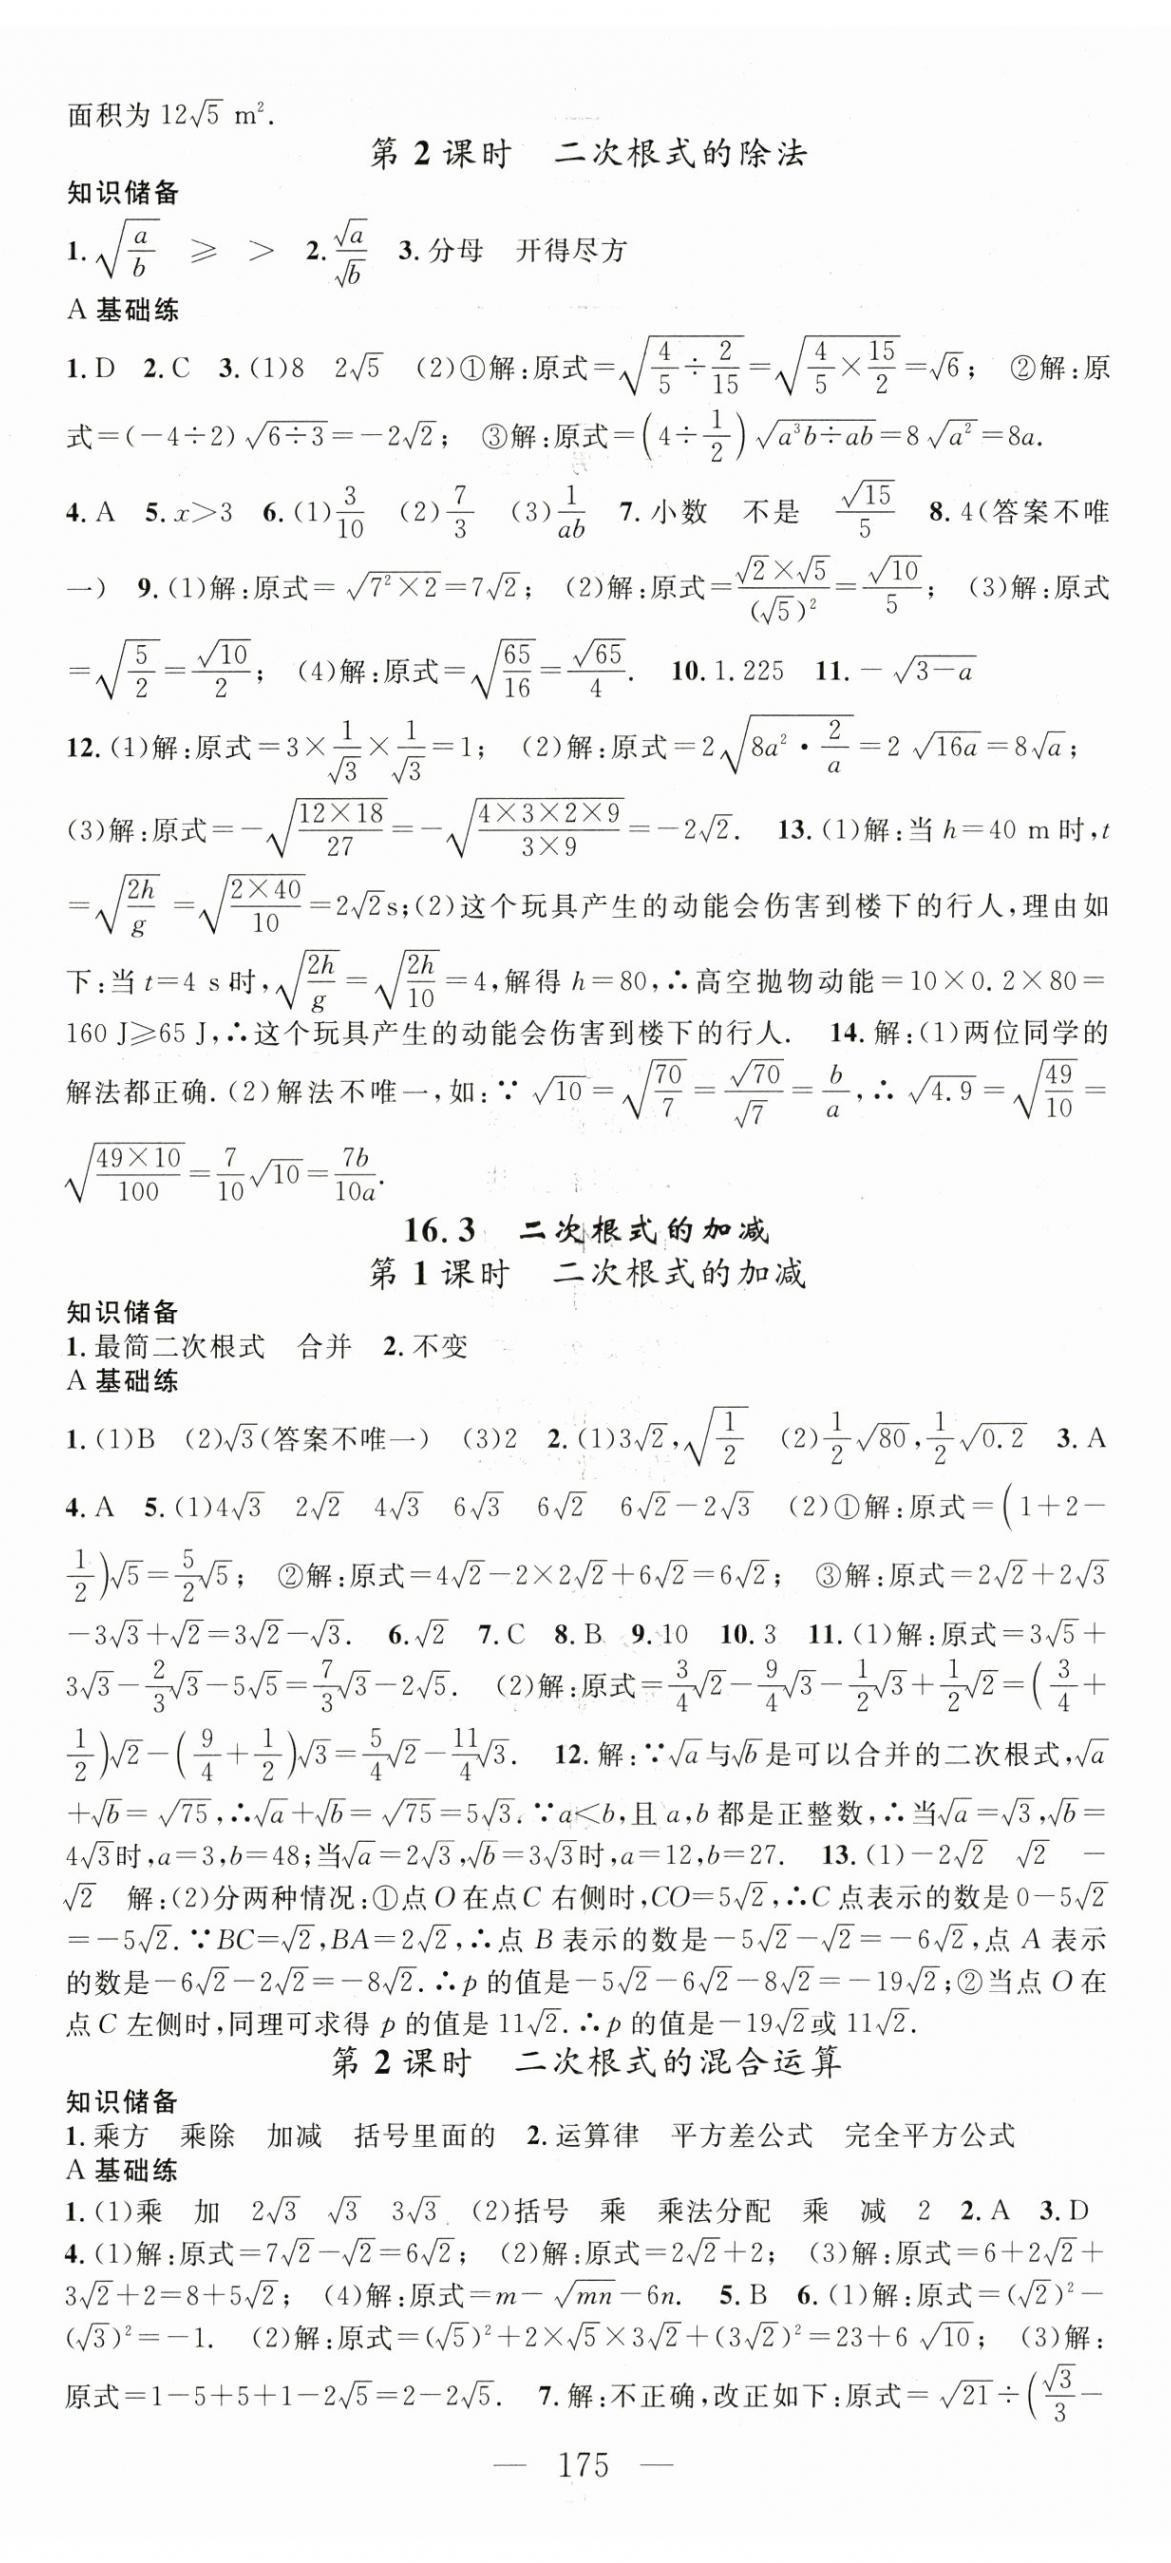 面积为 12√5 m².
第 2 课时　二次根式的除法
知识储备
1. √(a/b)　≥　>　2. √a/√b　3. 分母　开得尽方
A 基础练
1. D　2. C　3. (1)8　2√5　(2)①解:原式=√(4/5÷2/15)=√(4/5×15/2)=√6;　②解:原
式=(-4÷2)√(6÷3)=-2√2;　③解:原式=(4÷1/2)√(a³b÷ab)=8√(a²)=8a.
4. A　5. x>3　6. (1)3/10　(2)7/3　(3)1/ab　7. 小数　不是　√15/5　8. 4(答案不唯
一)　9. (1)解:原式=√(7²×2)=7√2;　(2)解:原式=(√2×√5)/(√5)²=√10/5;　(3)解:原式
=√(5/2)=√10/2;　(4)解:原式=√(65/16)=√65/4.　10. 1.225　11. -√(3-a)
12. (1)解:原式=3×1/√3×1/√3=1;　(2)解:原式=2√(8a²·2/a)=2√(16a)=8√a;
(3)解:原式=-√((12×18)/27)=-√((4×3×2×9)/(3×9))=-2√2.　13. (1)解:当 h=40 m 时,t
=√(2h/g)=√((2×40)/10)=2√2s;(2)这个玩具产生的动能会伤害到楼下的行人,理由如
下:当 t=4 s 时,√(2h/g)=√(2h/10)=4,解得 h=80,∴高空抛物动能=10×0.2×80=
160 J≥65 J,∴这个玩具产生的动能会伤害到楼下的行人.　14. 解:(1)两位同学的
解法都正确.(2)解法不唯一,如:∵√10=√(70/7)=√70/√7=b/a,∴√4.9=√(49/10)=
√((49×10)/100)=7/10√10=7b/10a.
16.3　二次根式的加减
第 1 课时　二次根式的加减
知识储备
1. 最简二次根式　合并　2. 不变
A 基础练
1. (1)B　(2)√3(答案不唯一)　(3)2　2. (1)3√2,√(1/2)　(2)1/2√80,1/2√0.2　3. A
4. A　5. (1)4√3　2√2　4√3　6√3　6√2　6√2-2√3　(2)①解:原式=(1+2-
1/2)√5=5/2√5;　②解:原式=4√2-2×2√2+6√2=6√2;　③解:原式=2√2+2√3
-3√3+√2=3√2-√3.　6. √2　7. C　8. B　9. 10　10. 3　11. (1)解:原式=3√5+
3√3-2/3√3-5√5=7/3√3-2√5.　(2)解:原式=3/4√2-9/4√3-1/2√3+1/2√2=(3/4+
1/2)√2-(9/4+1/2)√3=5/4√2-11/4√3.　12. 解:∵√a与√b是可以合并的二次根式,√a
+√b=√75,∴√a+√b=√75=5√3.∵a<b,且 a,b 都是正整数,∴当√a=√3,√b=
4√3时,a=3,b=48;当√a=2√3,√b=3√3时,a=12,b=27.　13. (1)-2√2　√2　-
√2　解:(2)分两种情况:①点 O 在点 C 右侧时,CO=5√2,∴C 点表示的数是 0-5√2
=-5√2.∵BC=√2,BA=2√2,∴点 B 表示的数是-5√2-√2=-6√2,点 A 表示
的数是-6√2-2√2=-8√2.∴p 的值是-5√2-6√2-8√2=-19√2;②当点 O 在
点 C 左侧时,同理可求得 p 的值是 11√2.∴p 的值是-19√2或 11√2.
第 2 课时　二次根式的混合运算
知识储备
1. 乘方　乘除　加减　括号里面的　2. 运算律　平方差公式　完全平方公式
A 基础练
1. (1)乘　加　2√3　√3　3√3　(2)括号　乘　乘法分配　乘　减　2　2. A　3. D
4. (1)解:原式=7√2-√2=6√2;　(2)解:原式=2√2+2;　(3)解:原式=6+2√2+
3√2+2=8+5√2;　(4)解:原式=m-√mn-6n.　5. B　6. (1)解:原式=(√2)²-
(√3)²=-1.　(2)解:原式=(√5)²+2×√5×3√2+(3√2)²=23+6√10;　(3)解:
原式=1-5+5+1-2√5=2-2√5.　7. 解:不正确,改正如下:原式=√21÷(√3/3-
— 175 —